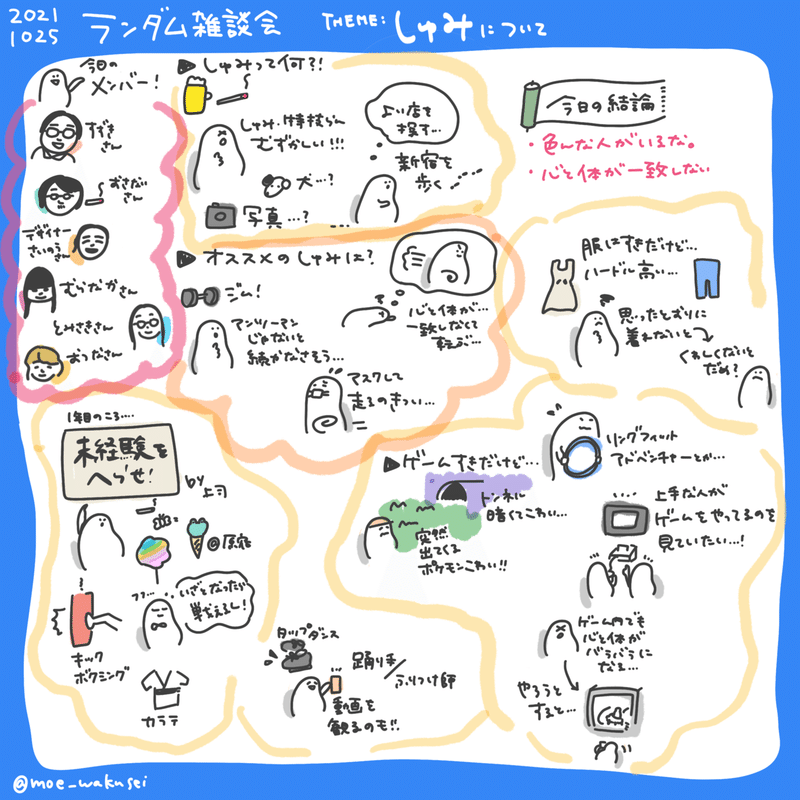 2021
1025
ランダム雑談会
THEME:
しゅみについて
今日の
メンバー!
すずき
さん
おさだい
さん
デザイナー
さいのうさん
むらなかさん
とみさきさん
おつなさん
▶しゅみって何?!
しゅみ・特技らん
むずかしい!!!
犬…?
写真…?
よい店を
探す…
新宿を
歩く
今日の結論
・色んな人がいるな。
・心と体が一致しない
▶オススメのしゅみは?
ジム!
マンツーマン
じゃないと
続かなさそう…
心と体が…
一致しなくて
転ぶ…
マスクして
走るのきつい…
服はすきだけど…
ハードル高い…
思ったとおりに
着れないと
くわしくないと
だめ?
1年目のころ…
未経験を
へらせ!
by上司
@原宿
フフ…
いざとなったら
戦えるし!
キック
ボクシング
カラテ
タップダンス
踊り手/
ふりつけ師
動画を
観るのも!!
▶ゲームすきだけど…
トンネル
暗くてこわい…
突然
出てくる
ポケモンこわい!!
リングフィット
アドベンチャーとか…
上手な人が
ゲームをやってるのを
見ていたい…!
ゲーム内でも
心と体が
バラバラに
なる…
やろうと
すると…
@moe_wakusei